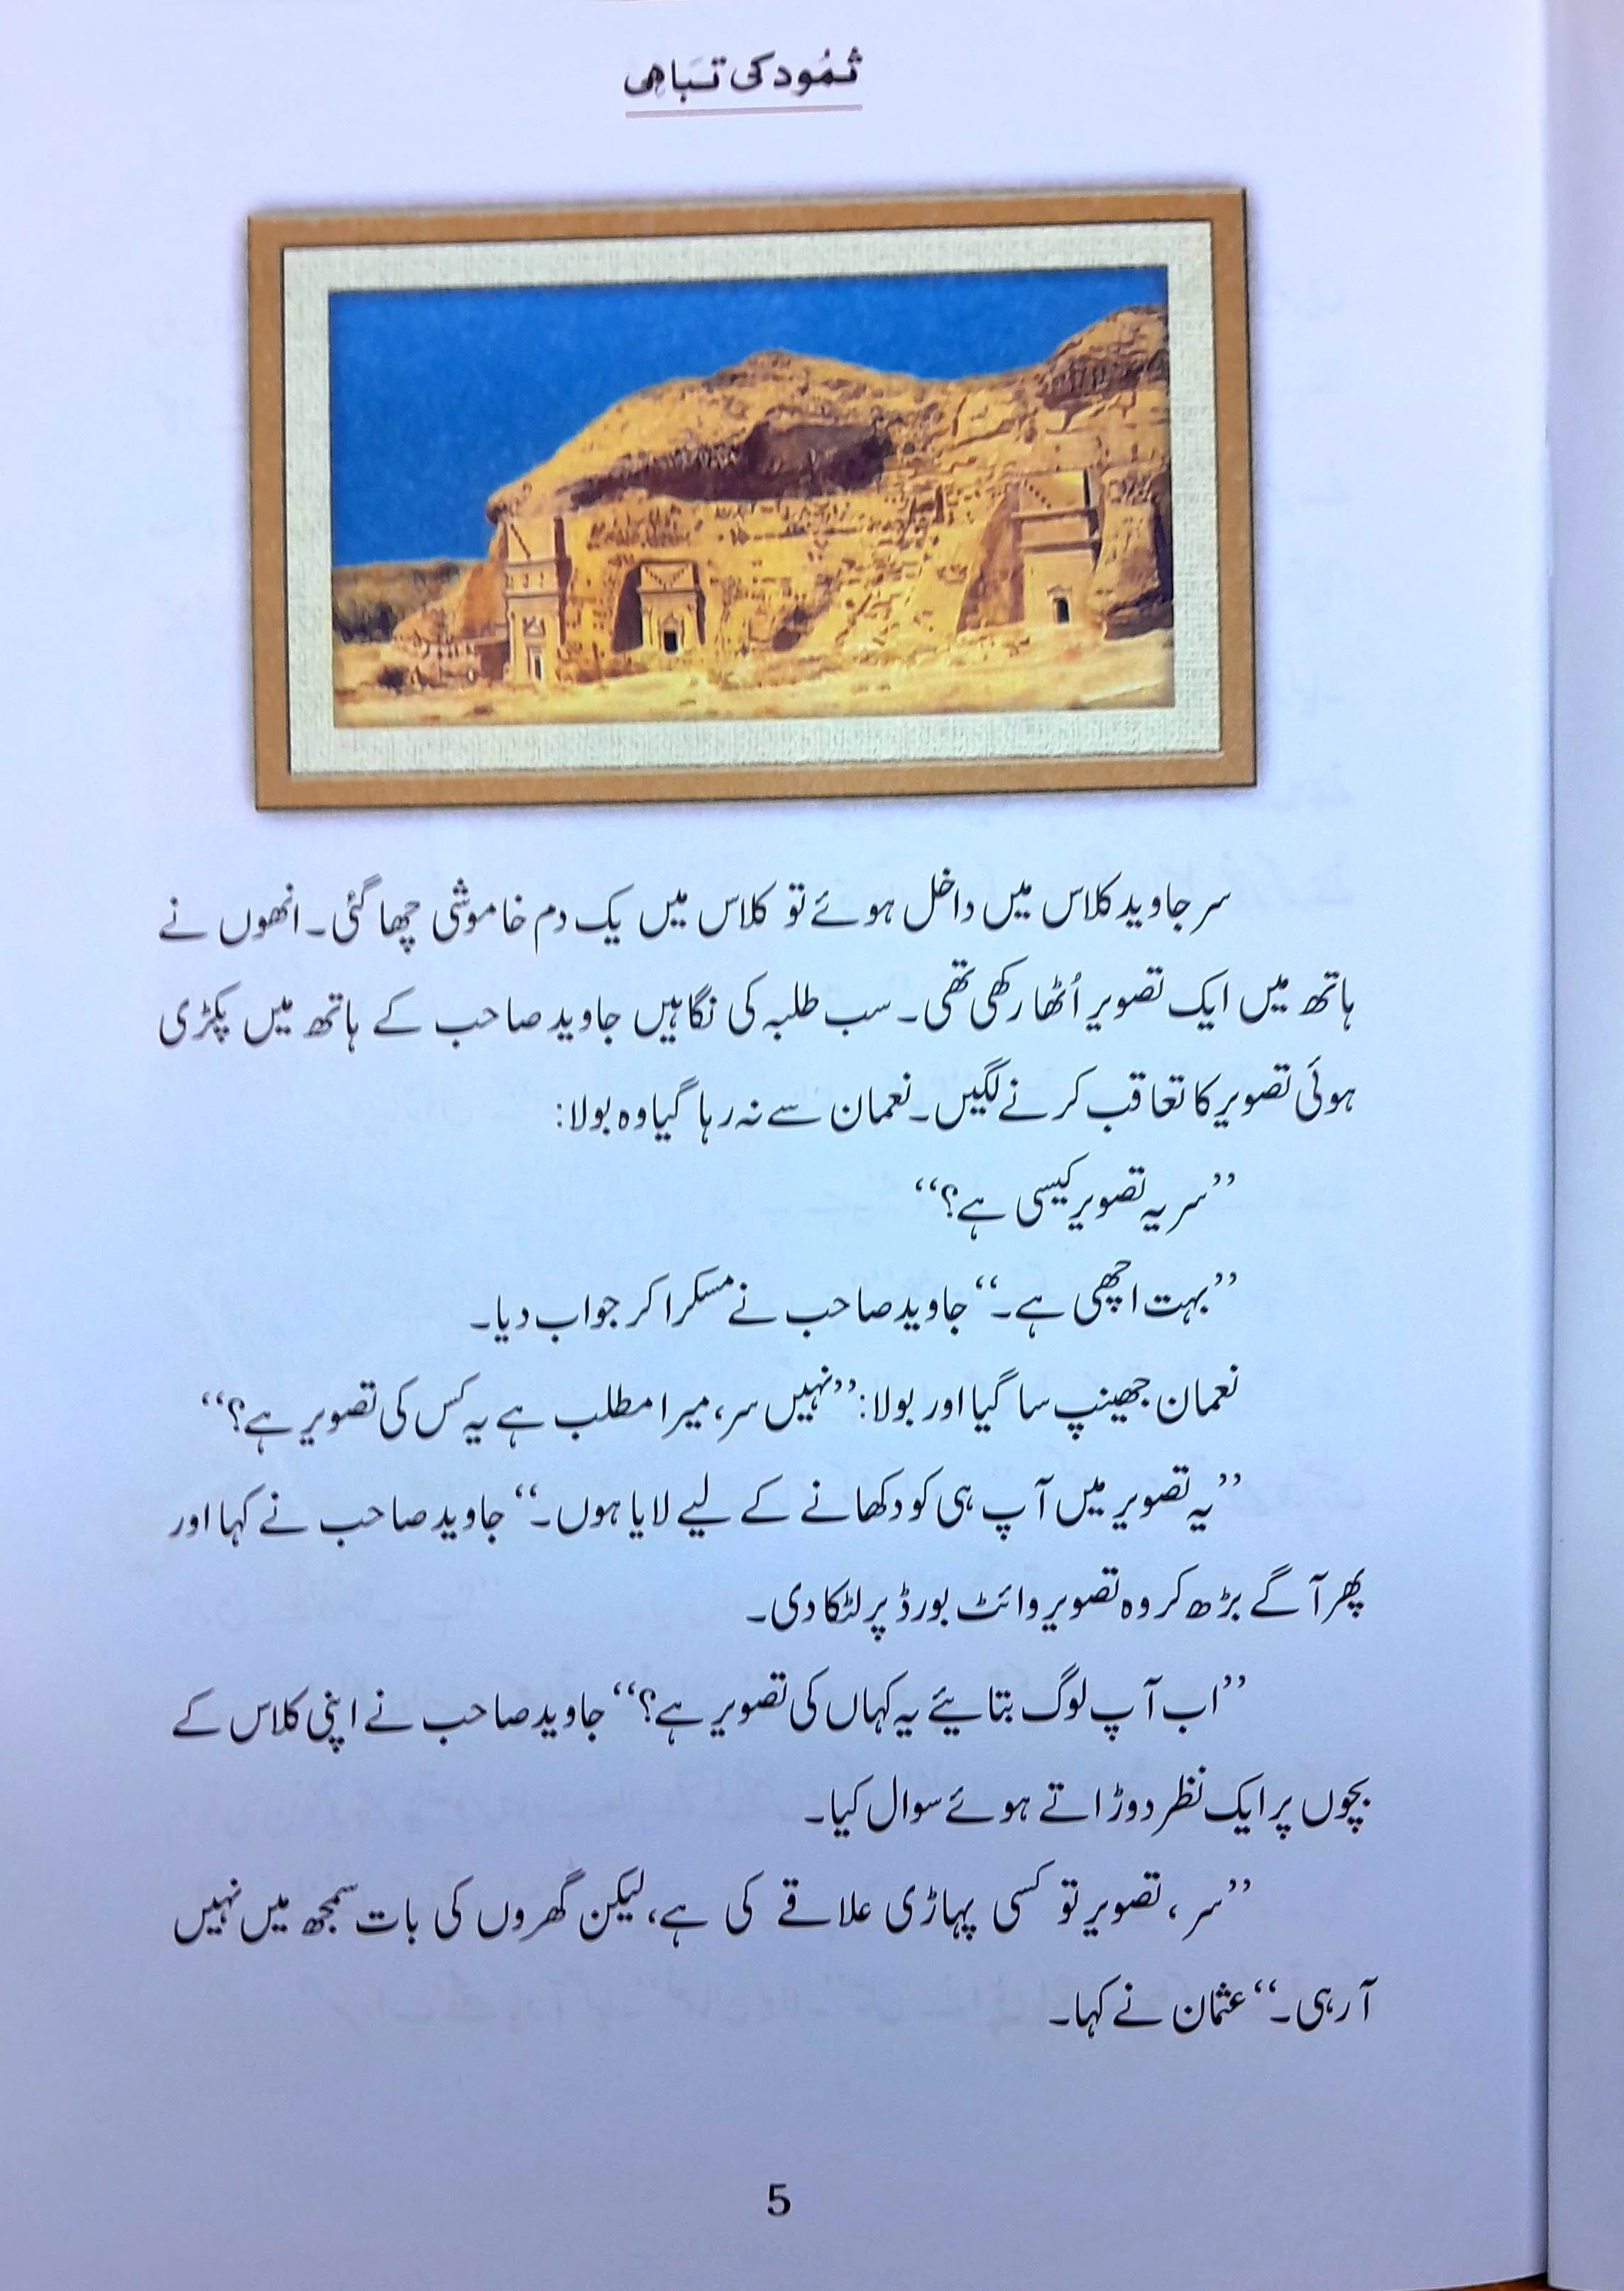 ثمُود کی تَباہی
سر جاوید کلاس میں داخل ہوئے تو کلاس میں یک دم خاموشی چھا گئی۔ انھوں نے
ہاتھ میں ایک تصویر اُٹھا رکھی تھی۔ سب طلبہ کی نگاہیں جاوید صاحب کے ہاتھ میں پکڑی
ہوئی تصویر کا تعاقب کرنے لگیں۔ نعمان سے نہ رہا گیا وہ بولا:
’’سر یہ تصویر کیسی ہے؟‘‘
’’بہت اچھی ہے۔‘‘ جاوید صاحب نے مسکرا کر جواب دیا۔
نعمان جھینپ سا گیا اور بولا: ’’نہیں سر، میرا مطلب ہے یہ کس کی تصویر ہے؟‘‘
’’یہ تصویر میں آپ ہی کو دکھانے کے لیے لایا ہوں۔‘‘ جاوید صاحب نے کہا اور
پھر آگے بڑھ کر وہ تصویر وائٹ بورڈ پر لٹکا دی۔
’’اب آپ لوگ بتائیے یہ کہاں کی تصویر ہے؟‘‘ جاوید صاحب نے اپنی کلاس کے
بچوں پر ایک نظر دوڑاتے ہوئے سوال کیا۔
’’سر، تصویر تو کسی پہاڑی علاقے کی ہے، لیکن گھروں کی بات سمجھ میں نہیں
آ رہی۔‘‘ عثمان نے کہا۔
5